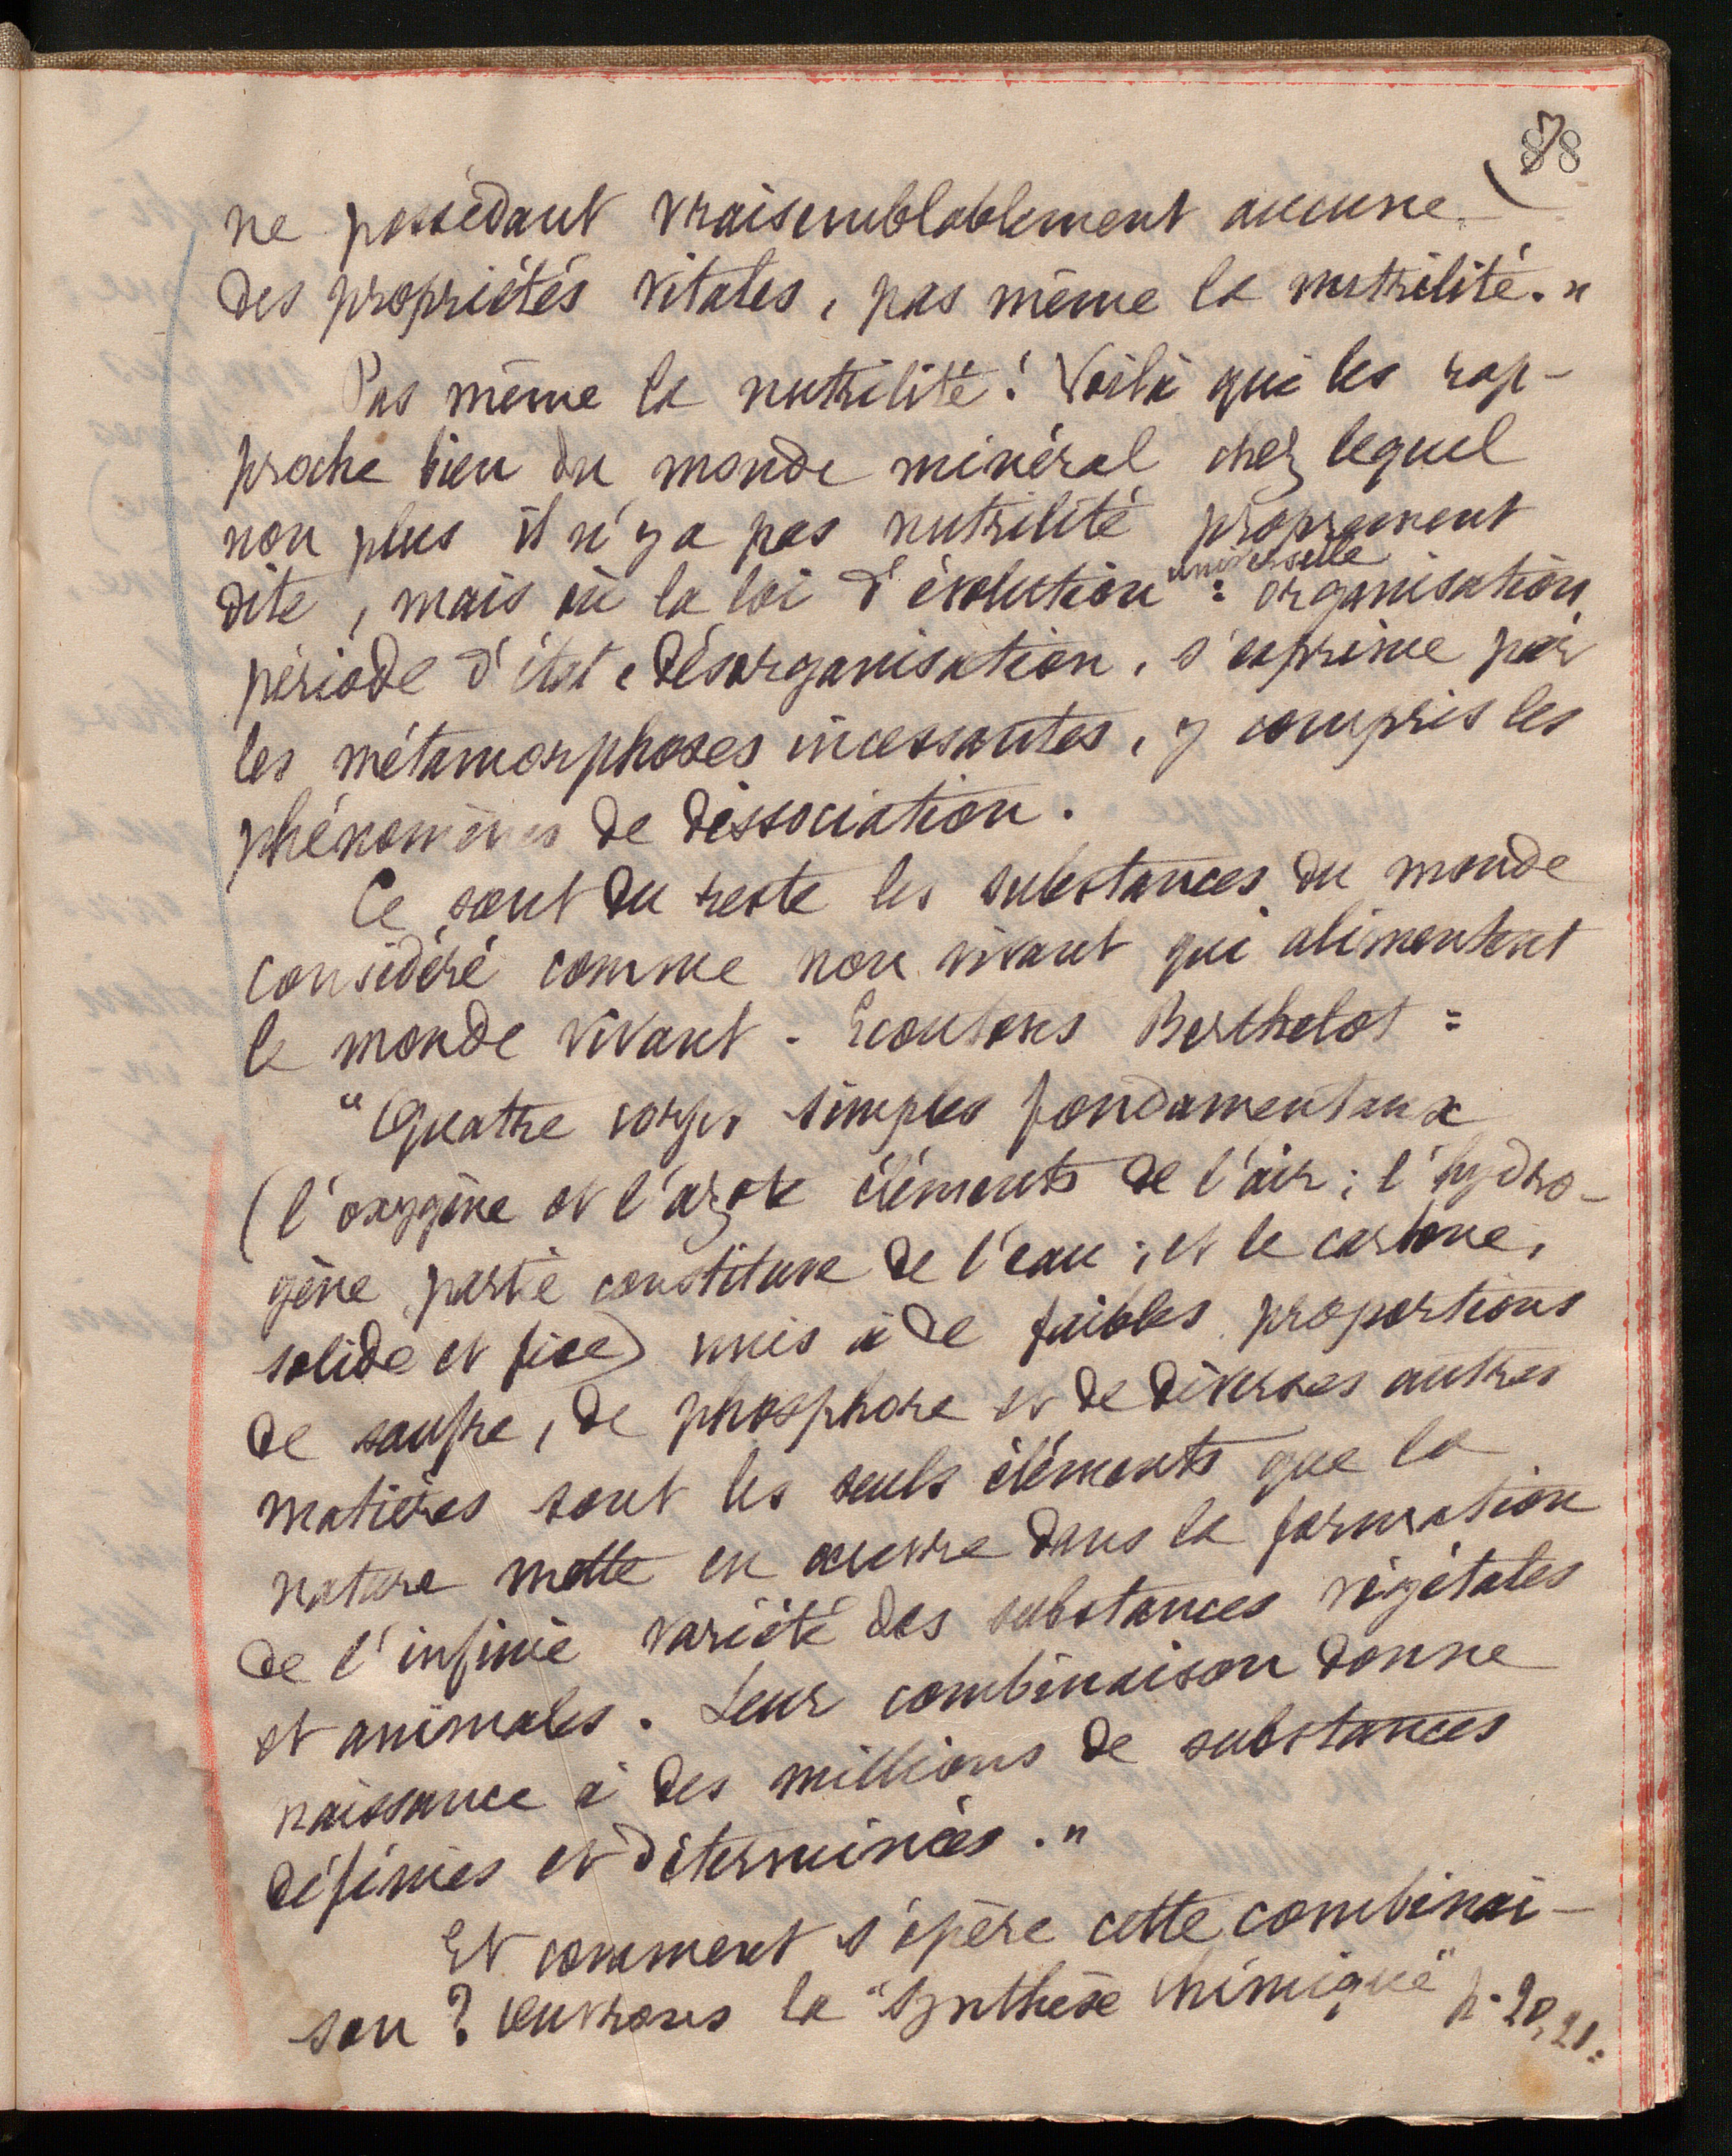 88
7
ne possédant vraisemblablement aucune
des propriétés vitales, pas même la nutrilité."
Pas même la nutrilité! Voilà qui les rap-
proche bien du monde minéral chez lequel
non plus il n'y a pas nutrilité proprement
universelle
dite, mais où la loi d'évolution : organisation,
période d'état, désorganisation, s'exprime par
les métamorphoses incessantes, y compris les
phénomènes de dissociation.
Ce sont du reste les substances du monde
considéré comme non vivant qui alimentent
le monde vivant. Ecoutons Berthelot :
"Quatre corps simples fondamentaux
(l'oxygène et l'azote éléments de l'air; l'hydro-
gène partie constitutive de l'eau; et le carbone,
solide et fixe) unis à de faibles proportions
de soufre, de phosphore et de diverses autres
matières sont les seuls éléments que la
nature mette en œuvre dans la formation
de l'infinie variété des substances végétales
et animales. Leur combinaison donne
naissance à des millions de substances
définies et déterminées."
Et comment s'opère cette combinai-
son? Ouvrons la "Synthèse chimique" p. 20, 21: